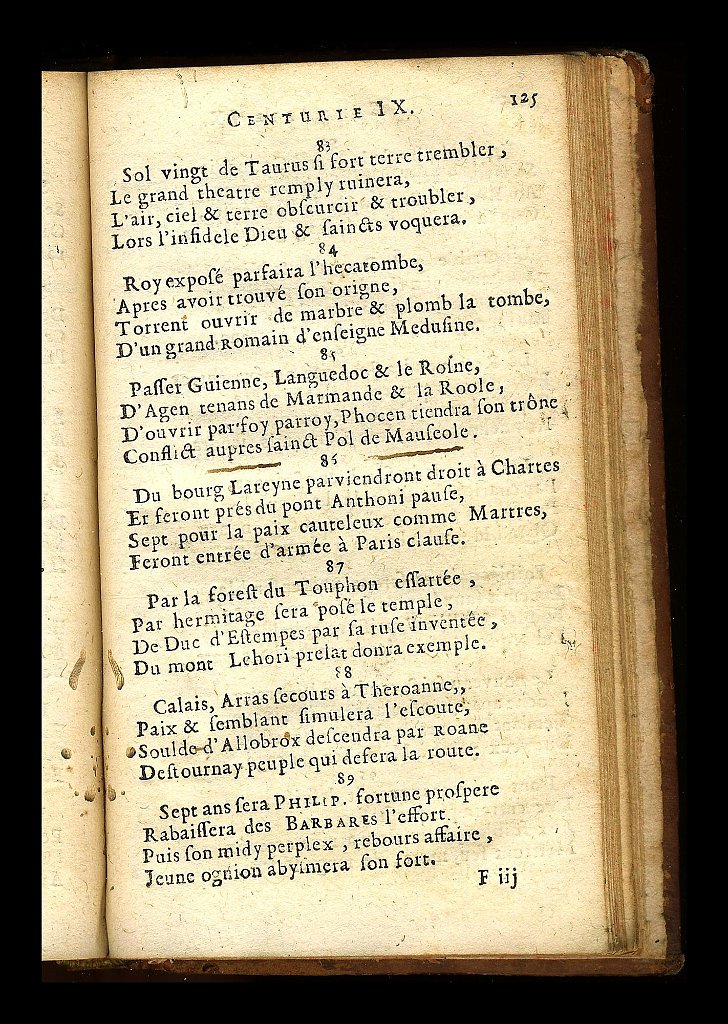 CENTURIE IX. 125
83
Sol vingt de Taurus ſi fort terre trembler,
Le grand theatre remply ruinera,
L'air, ciel & terre obſcurcir & troubler,
Lors l'infidele Dieu & ſaincts voquera.
84
Roy expoſé parfaira l'hecatombe,
Apres avoir trouvé ſon origne,
Torrent ouvrir de marbre & plomb la tombe,
D'un grand Romain d'enſeigne Meduſine.
85
Paſſer Guienne, Languedoc & le Roſne,
D'Agen tenans de Marmande & la Roole,
D'ouvrir par foy parroy, Phocen tiendra ſon trône
Conflict aupres ſainct Pol de Mauſeole.
86
Du bourg Lareyne parviendront droit à Chartes
Et feront prés du pont Anthoni pauſe,
Sept pour la paix cauteleux comme Martres,
Feront entrée d'armée à Paris clauſe.
87
Par la foreſt du Touphon eſſartée,
Par hermitage ſera poſé le temple,
De Duc d'Eſtempes par ſa ruſe inventée,
Du mont Lehori prelat donra exemple.
88
Calais, Arras ſecours à Theroanne,,
Paix & ſemblant ſimulera l'eſcoute,
Soulde d'Allobrox deſcendra par Roane
Deſtournay peuple qui defera la route.
89
Sept ans ſera PHILIP. fortune proſpere
Rabaiſſera des BARBARES l'effort
Puis ſon midy perplex, rebours affaire,
Jeune ognion abyſmera ſon fort.
F iij